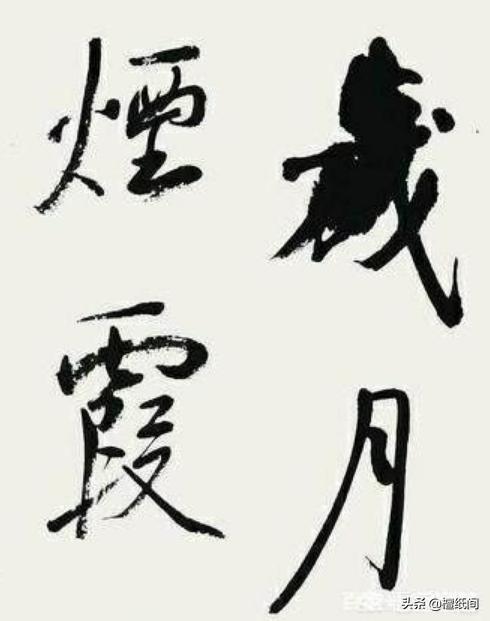 歲月
煙霞
头条 @檀纸间